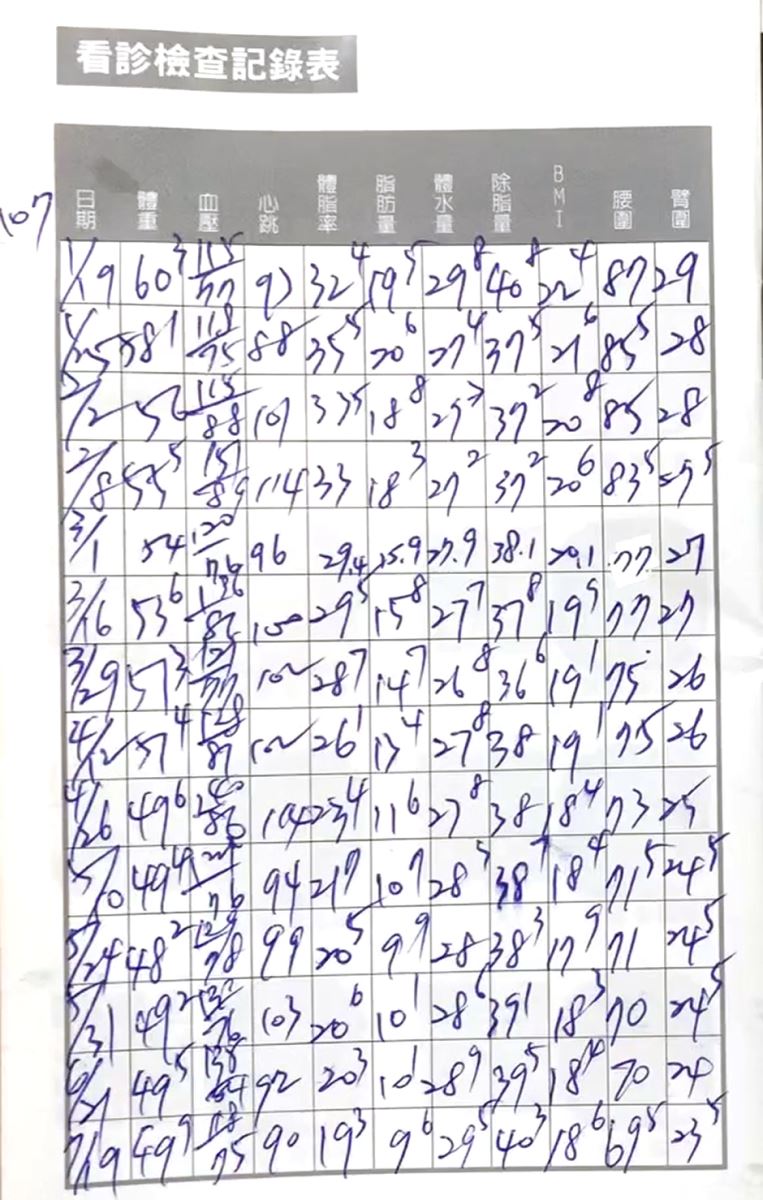 看診檢查記錄表
107
日期 體重 血壓 心跳 體脂率 脂肪量 體水量 除脂量 BMI 腰圍 臂圍
1/19 60³ 115/77 93 32⁴ 19⁵ 29⁸ 40⁸ 22⁴ 87 29
1/25 58¹ 118/75 88 35⁵ 20⁶ 27⁴ 37⁵ 21⁶ 85⁵ 28
2/2 56 115/88 101 33⁵ 18⁸ 27³ 37² 20⁸ 85 28
2/8 55⁵ 151/89 114 33 18³ 27² 37² 20⁶ 83⁵ 27⁵
3/1 54 120/76 96 29.4 15.9 27.9 38.1 20.1 77 27
3/16 53⁶ 136/83 100 29⁵ 15⁸ 27⁷ 37⁸ 19⁹ 77 27
3/29 51³ 77 102 28⁷ 14⁷ 26⁸ 36⁶ 19¹ 75 26
4/12 51⁴ 128/81 102 26¹ 13⁴ 27⁸ 38 19¹ 75 26
4/26 49⁶ 104 23⁴ 11⁶ 27⁸ 38 18⁴ 73 25
5/10 49⁴ 76 94 21⁷ 10⁷ 28⁵ 38⁷ 18⁴ 71⁵ 24⁵
5/24 48² 129/78 99 20⁵ 9⁹ 28 38³ 17⁹ 71 24⁵
5/31 49² 76 103 20⁶ 10¹ 28⁶ 39¹ 18³ 70 24⁵
6/21 49⁵ 138/84 92 20³ 10¹ 28⁹ 39⁵ 18⁴ 70 24
7/19 49⁹ 118/75 90 19³ 9⁶ 29⁵ 40³ 18⁶ 69⁵ 23⁵